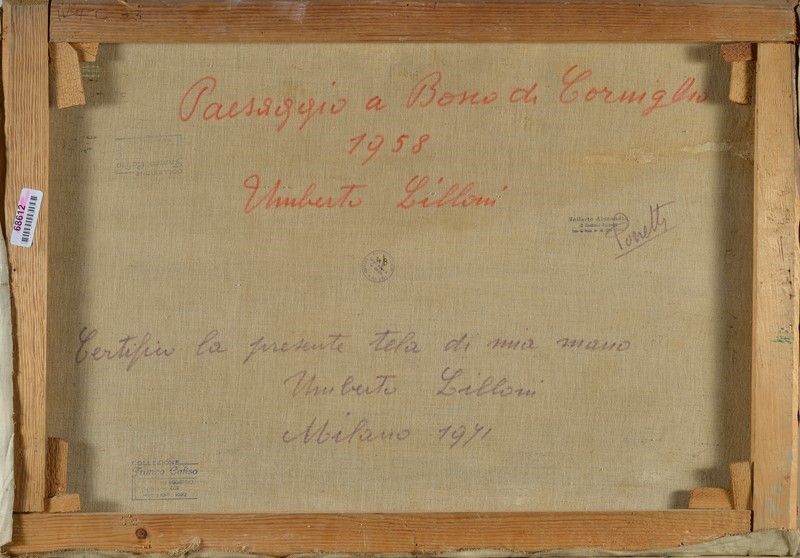 Paesaggio a Bosco di Corniglio
1958
Umberto Lilloni
68612
Galleria
Porretti
48
Certifico la presente tela di mia mano
Umberto Lilloni
Milano 1971
COLLEZIONE
Franco Cafiso